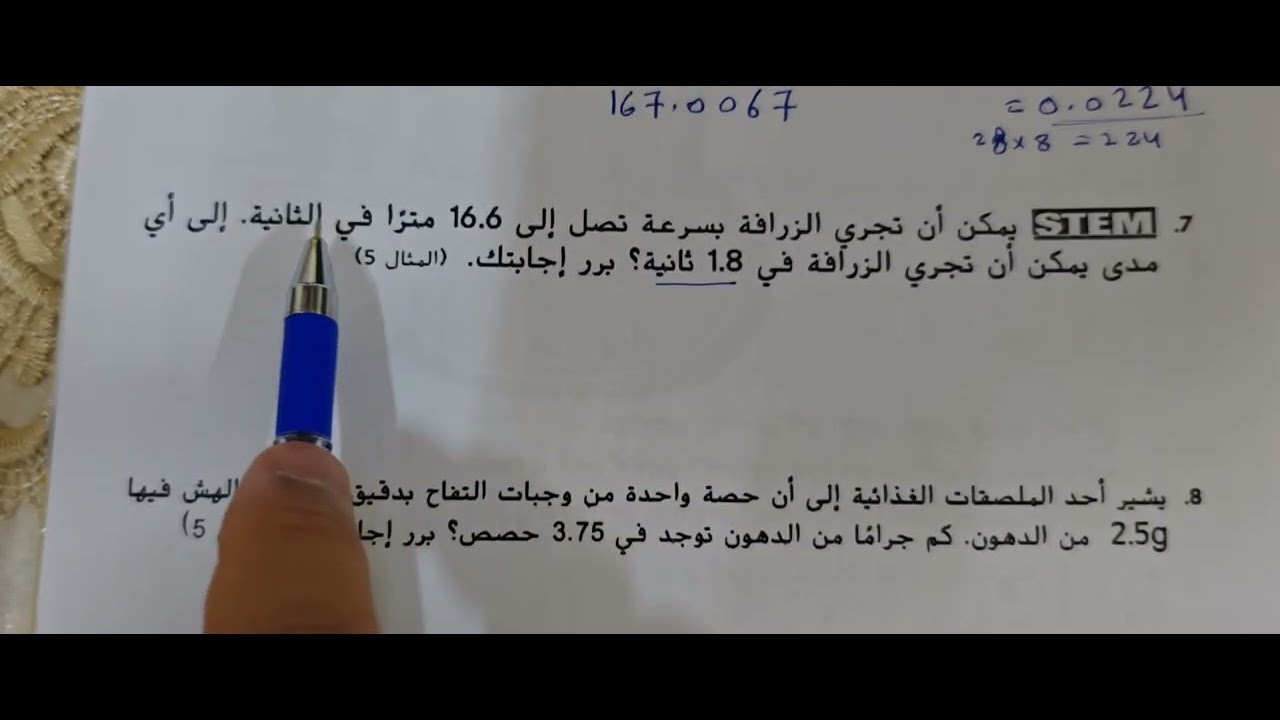 167.0067
= 0.0224
28 x 8 = 224
7. STEM يمكن أن تجري الزرافة بسرعة تصل إلى 16.6 مترًا في الثانية. إلى أي
مدى يمكن أن تجري الزرافة في 1.8 ثانية؟ برر إجابتك. (المثال 5)
8. يشير أحد الملصقات الغذائية إلى أن حصة واحدة من وجبات التفاح بدقيق الهش فيها
2.5g من الدهون. كم جرامًا من الدهون توجد في 3.75 حصص؟ برر 5)